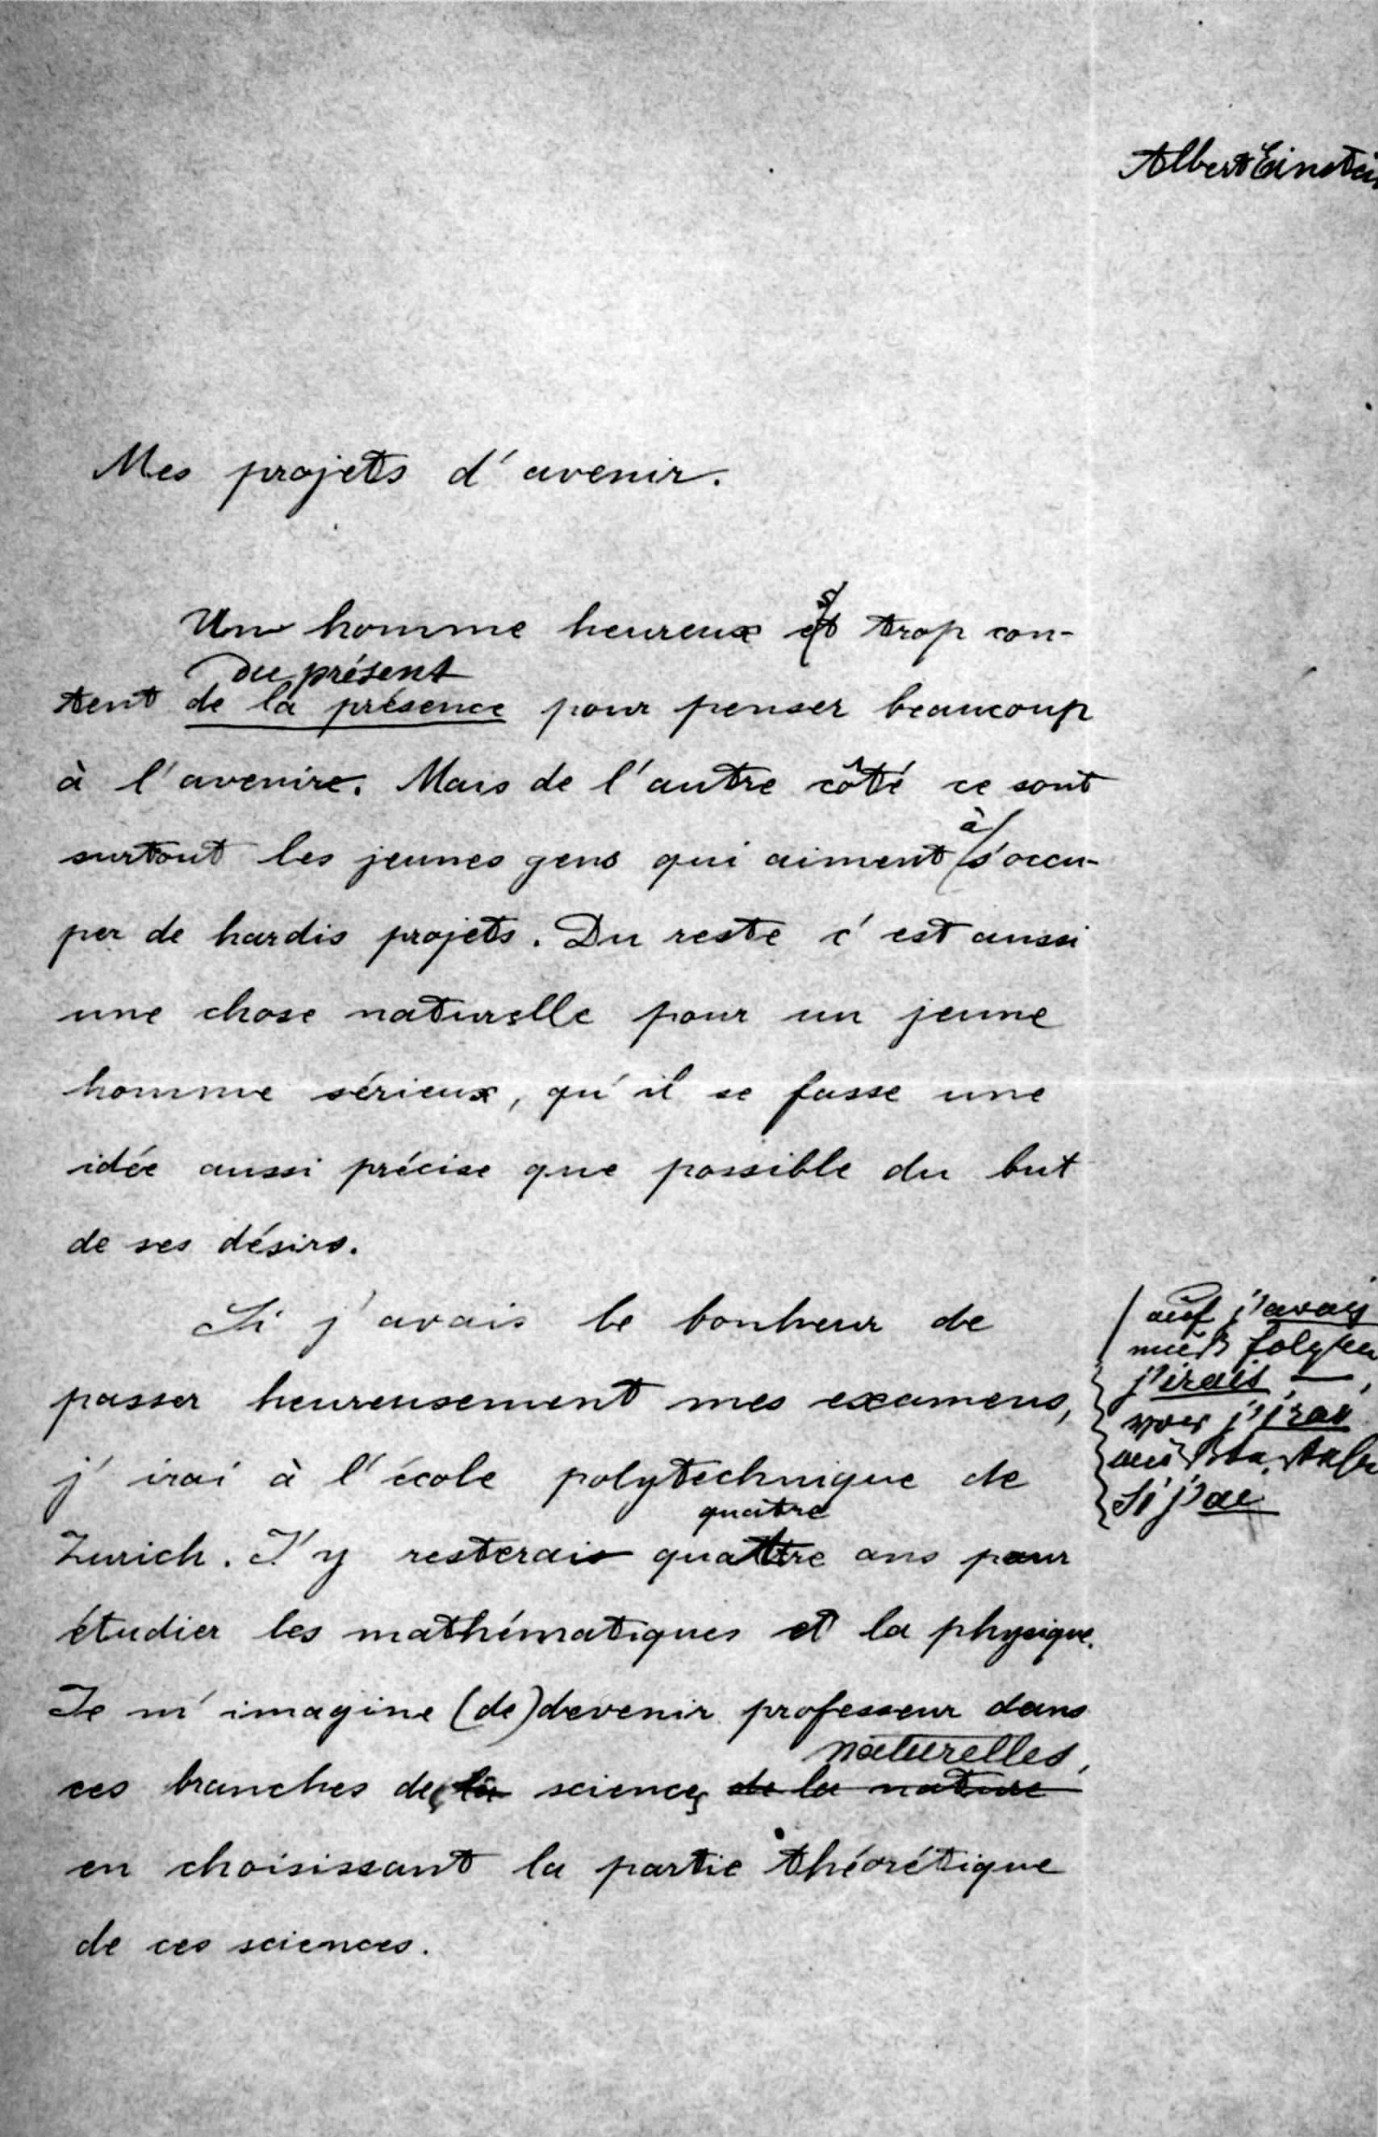 Albert Einstein
Mes projets d'avenir.
s
Un homme heureux et trop con-
du présent
tent de la présence pour penser beaucoup
à l'avenire. Mais de l'autre côté ce sont
à
surtout les jeunes gens qui aiment s'occu-
per de hardis projets. Du reste c'est aussi
une chose naturelle pour un jeune
homme sérieux, qu'il se fasse une
idée aussi précise que possible du but
de ses désirs.
Si j'avais le bonheur de
passer heureusement mes examens,
j'irai à l'école polytechnique de
quatre
Zurich. J'y resterais quattre ans pour
étudier les mathématiques et la physique.
Je m'imagine (de) devenir professeur dans
naturelles,
ces branches de la sciences de la nature
en choisissant la partie théorétique
de ces sciences.
auf j'avais
muß folgen
j'irais
j'irai
Si j'ai